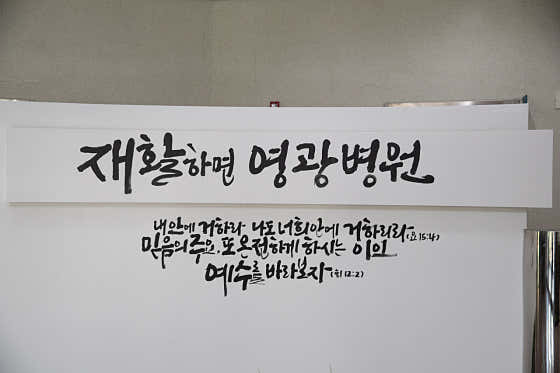 재활하면 영광병원
내 안에 거하라 나도 너희 안에 거하리라 (요 15:4)
믿음의 주요, 또 온전하게 하시는 이인
예수를 바라보자 (히 12:2)